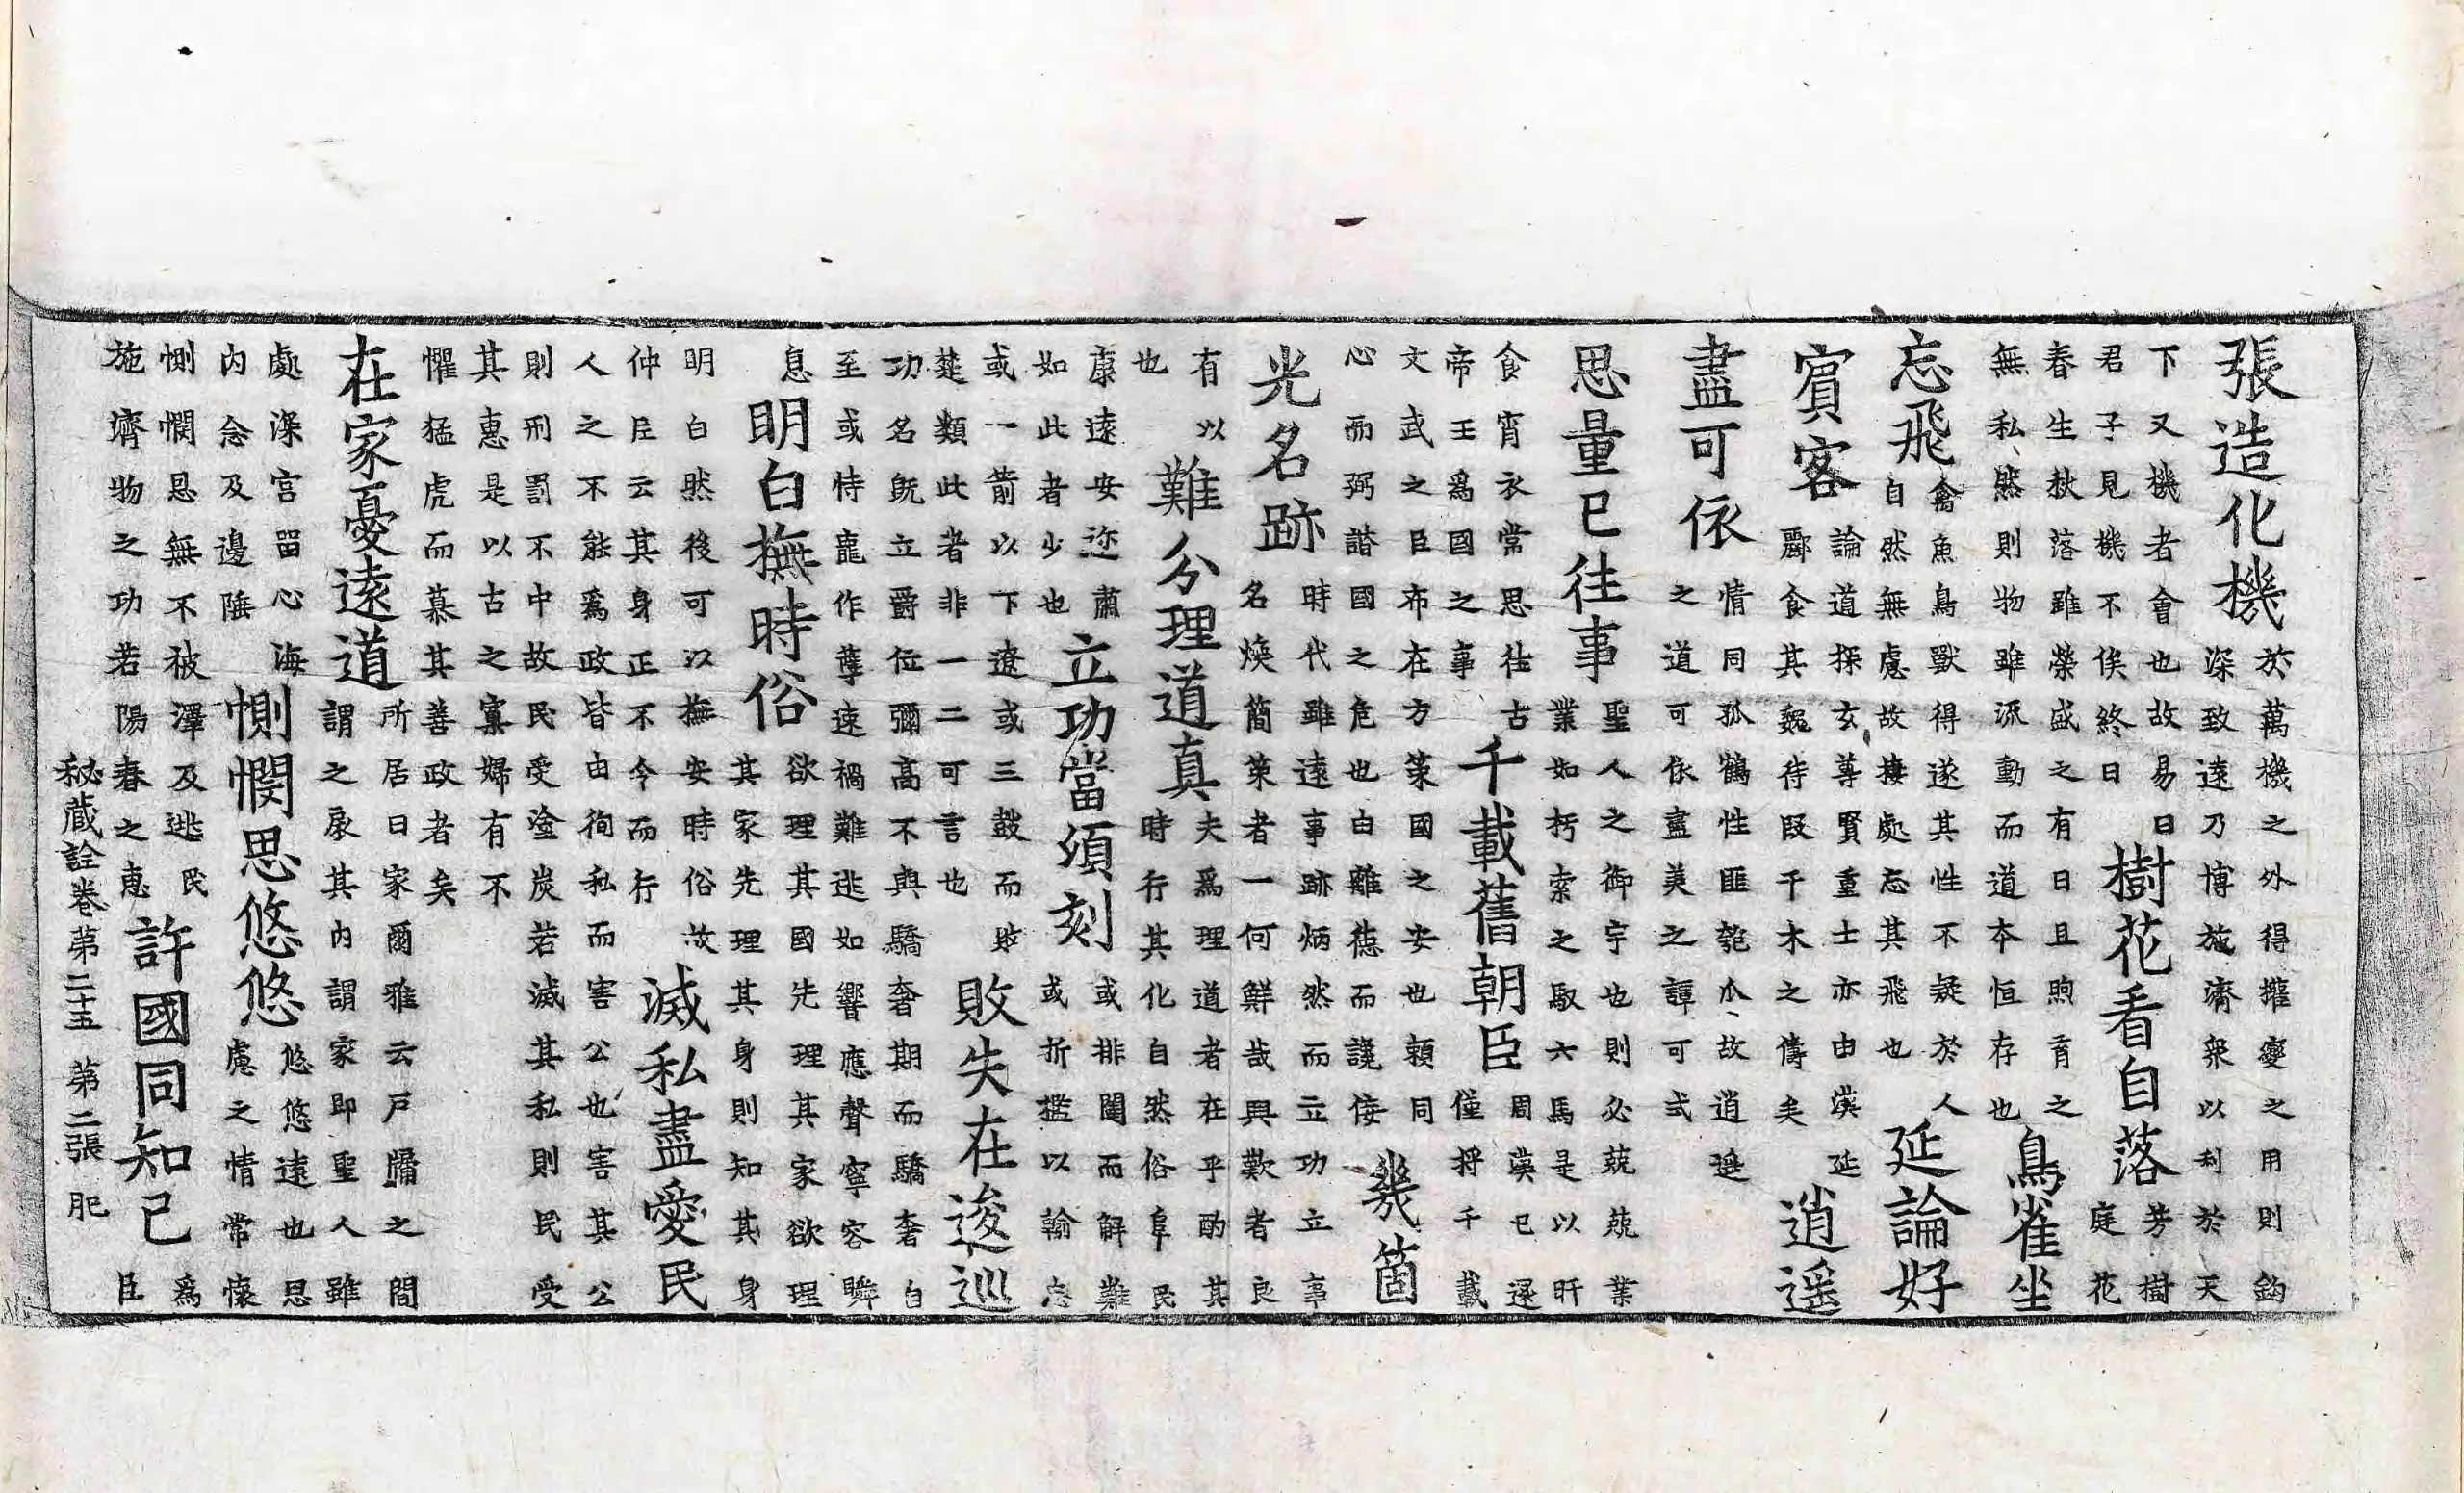 張造化機
於萬機之外得攉變之用則鈞
深致遠乃博施濟衆以利於天
下又機者會也故易曰
君子見機不俟終日
樹花看自落
芳樹
庭花
春生秋落雖榮盛之有日且煦育之
無私然則物雖流動而道本恒存也
鳥雀坐
忘飛
禽魚鳥獸得遂其性不疑於人
自然無慮故棲處忘其飛也
延論好
賓客
論道探玄尊賢重士亦由漢延
酈食其魏待段干木之儔矣
逍遥
盡可依
情同孤鶴性匪匏瓜故逍遥
之道可依盡美之譚可式
思量已往事
聖人之御宇也則必兢兢業
業如朽索之馭六馬是以旰
食宵衣常思往古
帝王爲國之事
千載舊朝臣
周漢已還
僅將千載
文武之臣布在方策國之安也頼同
心而弼諧國之危也白雞徳而讒佞
幾箇
光名跡
時代雖遠事跡炳然而立功立事
名煥簡策者一何鮮哉興歎者良
有以
也
難分理道真
夫爲理道者在乎酌其
時行其化自然俗阜民
康遠安迩肅
如此者少也
立功當須刻
或排闥而解難
或折檻以輸忠
或一箭以下遼或三鼓而敗
楚類此者非一二可言也
敗失在逡巡
功名既立爵位彌高不與驕奢期而驕奢自
至或恃寵作孽速禍難逃如響應聲寧容瞬
息
明白撫時俗
欲理其國先理其家欲理
其家先理其身則知其身
明白然後可以撫安時俗故
仲臣云其身正不令而行
滅私盡愛民
人之不能爲政皆由徇私而害公也害其公
則刑罰不中故民受塗炭若滅其私則民受
其惠是以古之寡婦有不
懼猛虎而慕其善政者矣
在家憂遠道
所居曰家爾雅云戸牖之間
謂之扆其内謂家即聖人雖
處深宫留心海
内念及邊陲
惻憫思悠悠
悠悠遠也思
慮之情常懷
惻憫恩無不被澤及逃民
施濟物之功若陽春之恵
許國同知己
爲
臣
秘蔵詮卷第二十五 第二張 肥